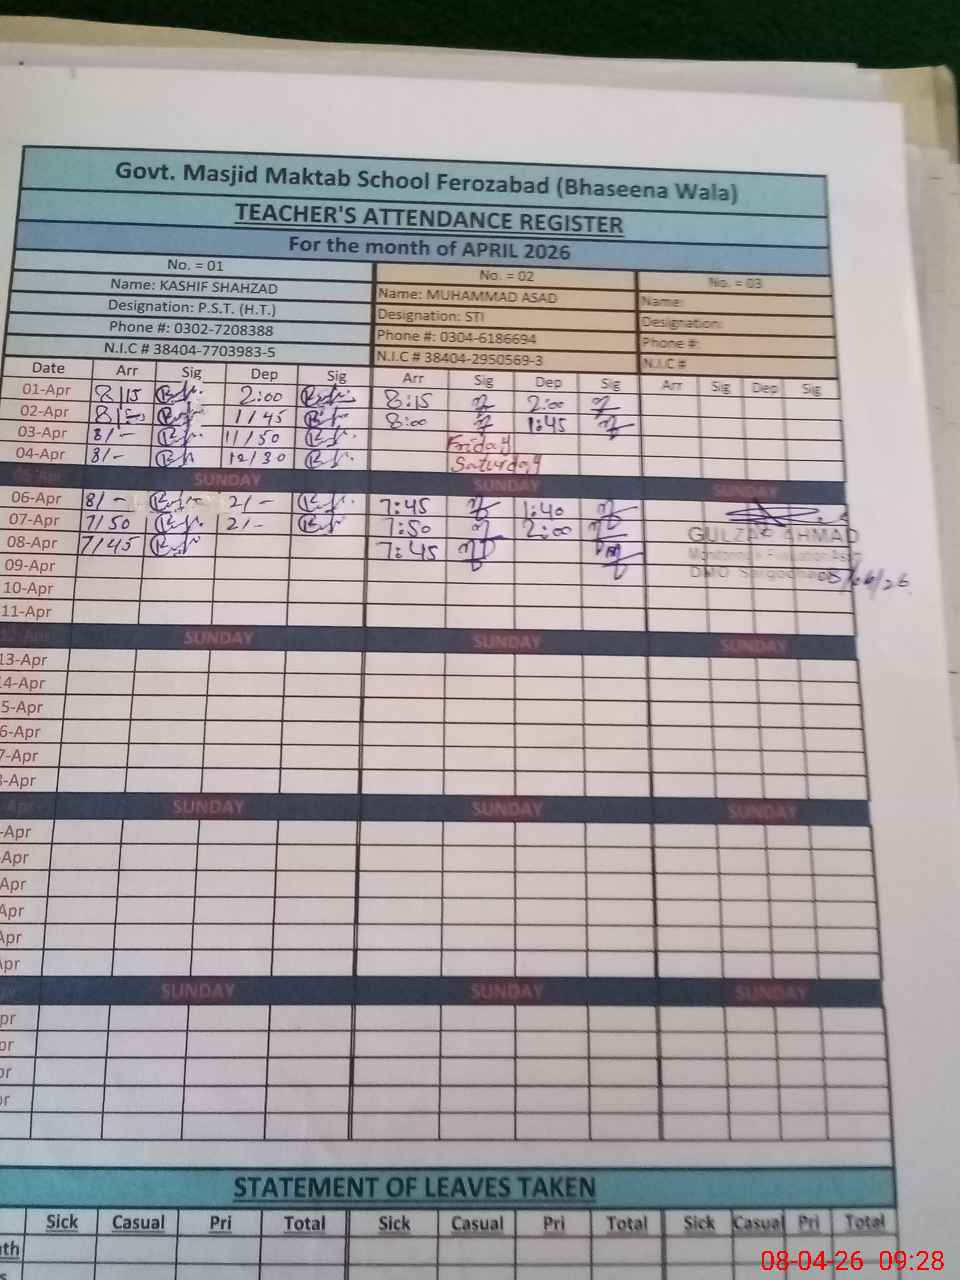 Govt. Masjid Maktab School Ferozabad (Bhaseena Wala)
TEACHER'S ATTENDANCE REGISTER
For the month of APRIL 2026
No. = 01 No. = 02 No. = 03
Name: KASHIF SHAHZAD Name: MUHAMMAD ASAD Name:
Designation: P.S.T. (H.T.) Designation: STI Designation:
Phone #: 0302-7208388 Phone #: 0304-6186694 Phone #:
N.I.C # 38404-7703983-5 N.I.C # 38404-2950569-3 N.I.C #
Date Arr Sig Dep Sig Arr Sig Dep Sig Arr Sig Dep Sig
01-Apr 8/15 2:00 8:15 2:00
02-Apr 1/45 8:00 1:45
03-Apr 8/- 11/50 Friday
04-Apr 8/- 12/30 Saturday
SUNDAY SUNDAY SUNDAY
06-Apr 8/- 2/- 7:45 1:40
07-Apr 7/50 2/- 7:50 2:00 GULZAR AHMAD
08-Apr 7/45 7:45 Monitoring
09-Apr DMO Sargodha 08/04/26
10-Apr
11-Apr
12-Apr SUNDAY SUNDAY SUNDAY
13-Apr
14-Apr
5-Apr
6-Apr
7-Apr
-Apr
-Apr SUNDAY SUNDAY SUNDAY
-Apr
-Apr
Apr
Apr
Apr
pr
SUNDAY SUNDAY SUNDAY
pr
or
or
or
STATEMENT OF LEAVES TAKEN
Sick Casual Pri Total Sick Casual Pri Total Sick Casual Pri Total
nth
08-04-26 09:28